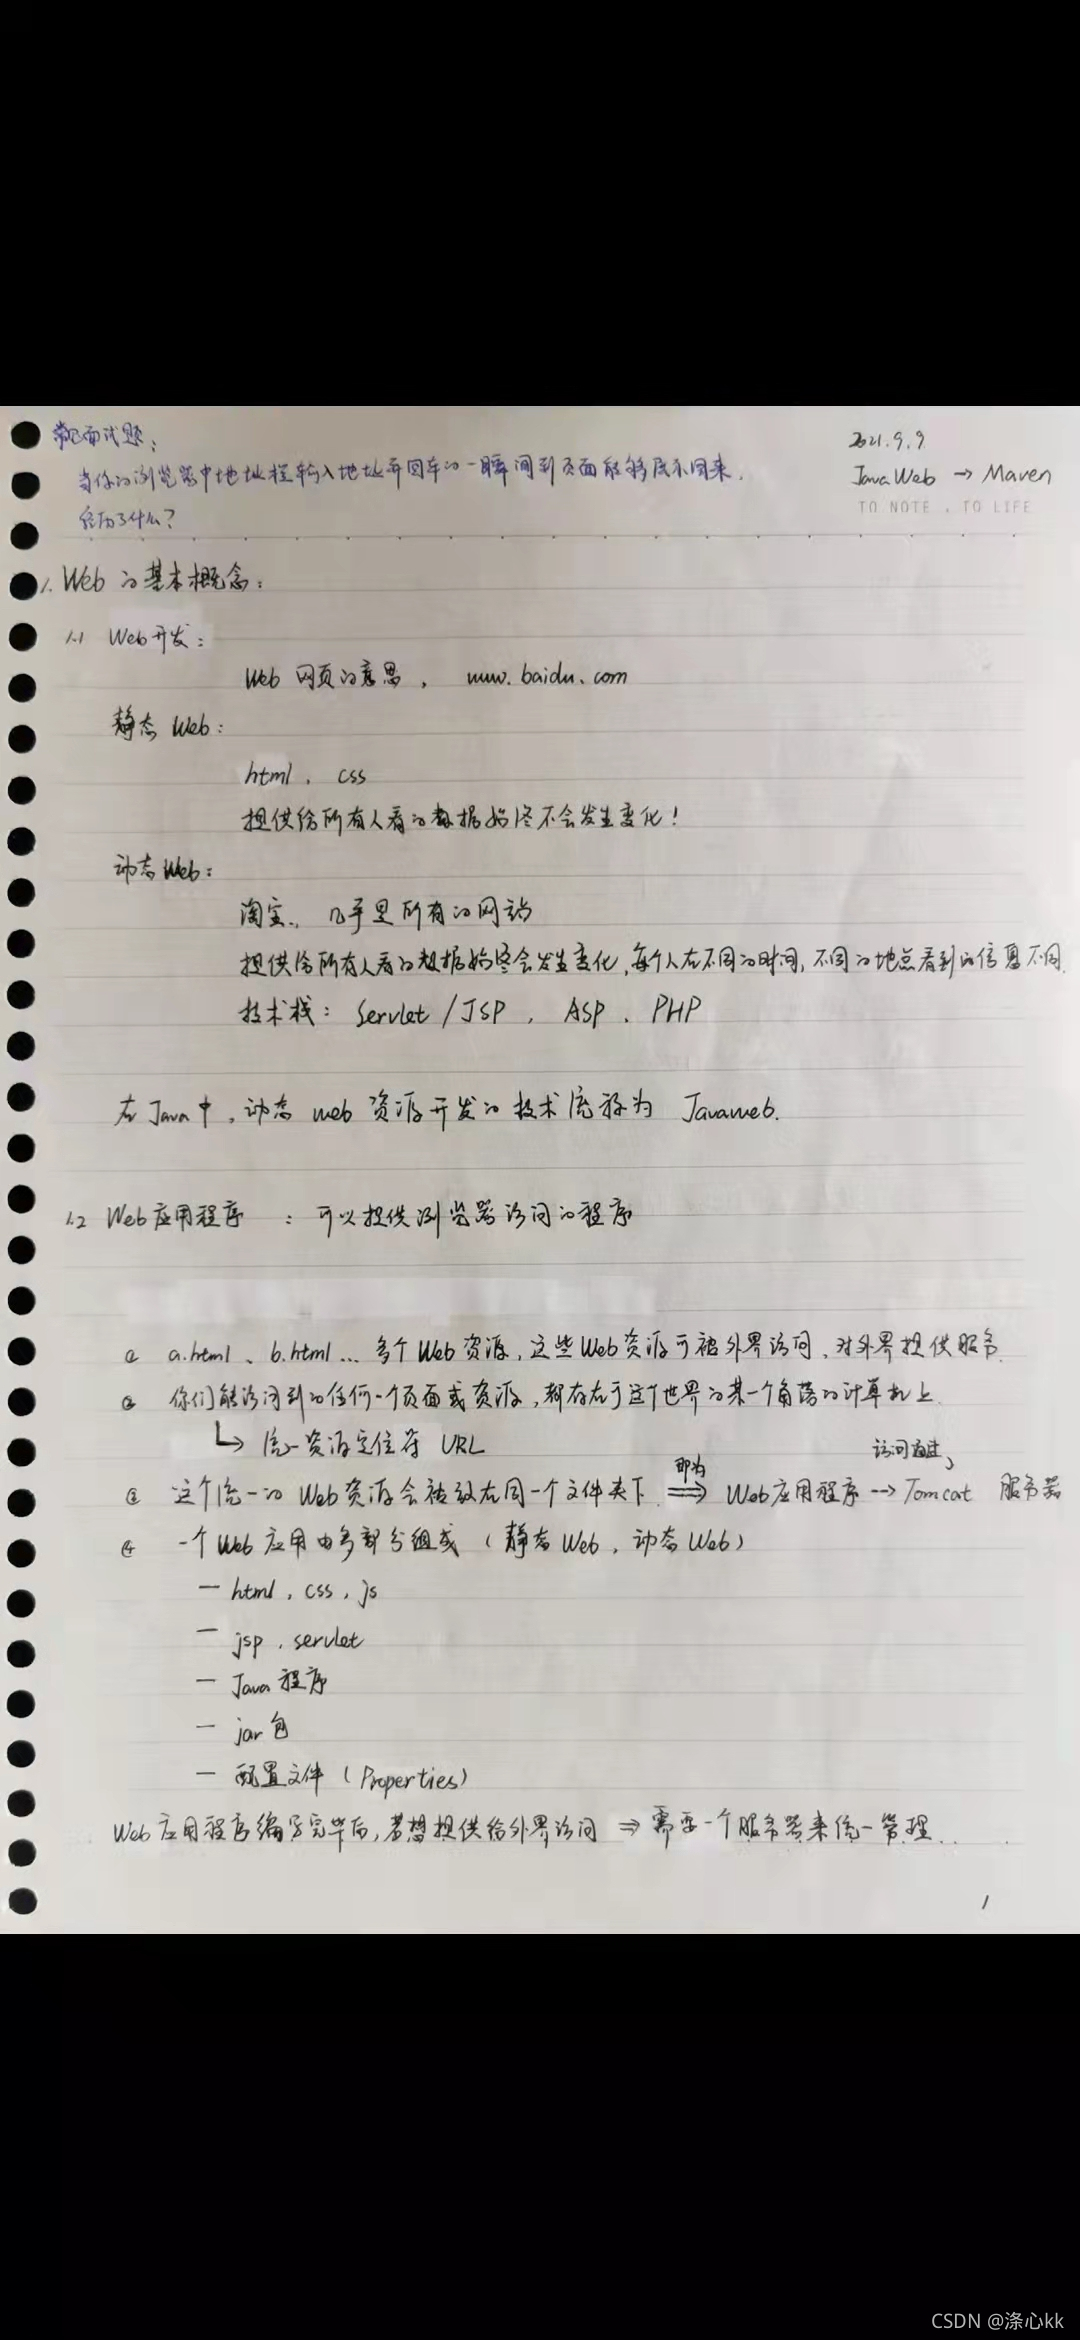 常见面试题：
2021.9.9
当你的浏览器中地址栏输入地址并回车的一瞬间到页面能够展示回来，
JavaWeb → Maven
TO NOTE , TO LIFE
经历了什么？
1. Web的基本概念：
1.1 Web开发：
Web 网页的意思， www.baidu.com
静态Web：
html、css
提供给所有人看的数据始终不会发生变化！
动态Web：
淘宝、几乎是所有的网站
提供给所有人看的数据始终会发生变化，每个人在不同的时间，不同的地点看到的信息不同.
技术栈：Servlet / JSP、ASP、PHP
在Java中，动态web资源开发的技术统称为 Javaweb.
1.2 Web应用程序 ：可以提供浏览器访问的程序
① a.html、b.html...多个Web资源，这些Web资源可被外界访问、对外界提供服务.
② 你们能访问到的任何一个页面或资源，都存在于这个世界的某一个角落的计算机上.
↳ 统一资源定位符 URL
③ 这个统一的Web资源会被放在同一个文件夹下. 即为⇒ Web应用程序 --> 访问通过 Tomcat 服务器
④ 一个Web应用由多部分组成（静态Web，动态Web）
— html，css，js
— jsp，servlet
— Java程序
— jar包
— 配置文件（Properties）
Web应用程序编写完毕后，若想提供给外界访问 ⇒ 需要一个服务器来统一管理.
1
CSDN @涤心kk